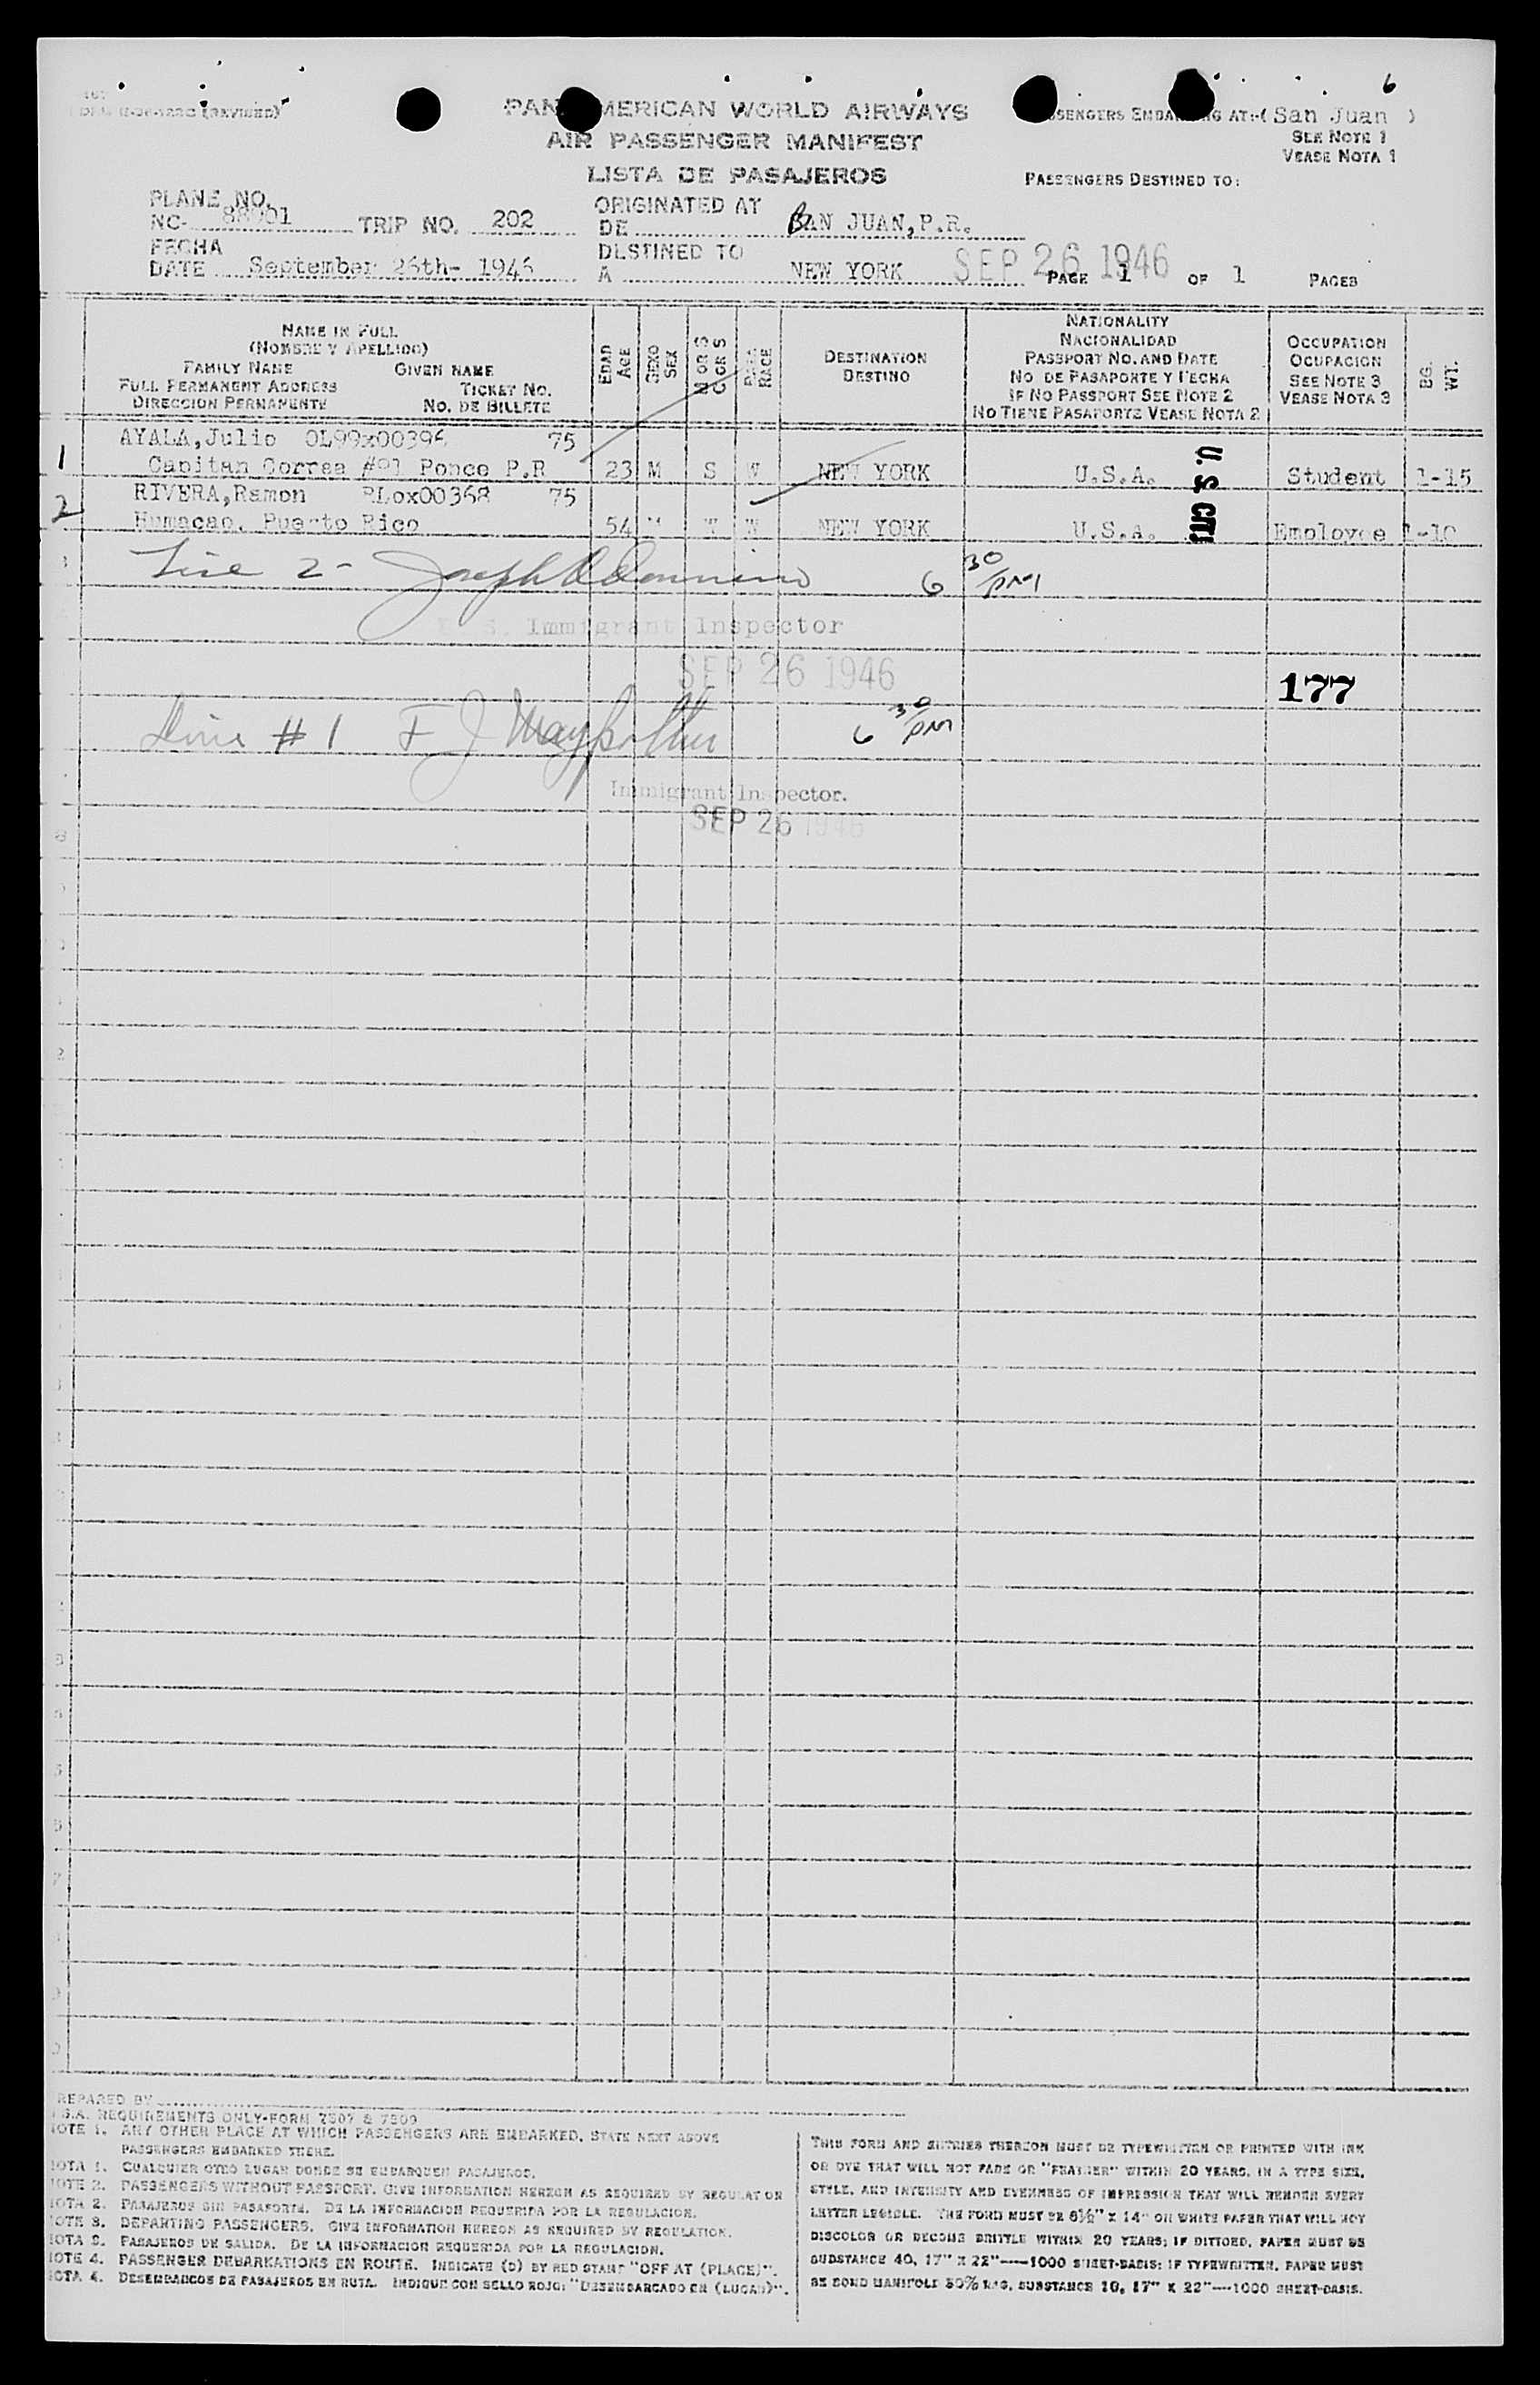 6
PAN AMERICAN WORLD AIRWAYS
AIR PASSENGER MANIFEST
LISTA DE PASAJEROS
PASSENGERS EMBARKING AT:-( San Juan )
SEE NOTE 1
VEASE NOTA 1
PASSENGERS DESTINED TO:
PLANE NO.
NC- 88901 TRIP NO. 202
ORIGINATED AT
DE SAN JUAN, P.R.
FECHA
DATE September 26th- 1946
DESTINED TO
A NEW YORK
SEP 26 1946
PAGE 1 OF 1 PAGES
NAME IN FULL
(NOMBRE Y APELLIDO)
FAMILY NAME GIVEN NAME
FULL PERMANENT ADDRESS TICKET NO.
DIRECCION PERMANENTE NO. DE BILLETE
EDAD AGE
SEXO SEX
M OR S
C OR S
RACE
DESTINATION
DESTINO
NATIONALITY
NACIONALIDAD
PASSPORT NO. AND DATE
NO DE PASAPORTE Y FECHA
IF NO PASSPORT SEE NOTE 2
NO TIENE PASAPORTE VEASE NOTA 2
OCCUPATION
OCUPACION
SEE NOTE 3
VEASE NOTA 3
BG. WT.
AYALA, Julio 75
1 Capitan Correa Ponce P.R 23 M S W NEW YORK U.S.A. Student 1-15
RIVERA, Ramon 75
2 Humacao, Puerto Rico 54 W NEW YORK U.S.A. Employee 1-10
U. S. CIT.
Line 2- 6 30 PM
U. S. Immigrant Inspector
SEP 26 1946
177
Line # 1 F J 6 30 PM
Immigrant Inspector.
SEP 26 1946
PREPARED BY
U.S.A. REQUIREMENTS ONLY-FORM 7507 & 7509
NOTE 1. ANY OTHER PLACE AT WHICH PASSENGERS ARE EMBARKED, STATE NEXT ABOVE
PASSENGERS EMBARKED THERE.
NOTA 1. CUALQUIER OTRO LUGAR DONDE SE EMBARQUEN PASAJEROS.
NOTE 2. PASSENGERS WITHOUT PASSPORT. GIVE INFORMATION HEREON AS REQUIRED BY REGULATION
NOTA 2. PASAJEROS SIN PASAPORTE. DE LA INFORMACION REQUERIDA POR LA REGULACION.
NOTE 3. DEPARTING PASSENGERS. GIVE INFORMATION HEREON AS REQUIRED BY REGULATION.
NOTA 3. PASAJEROS DE SALIDA. DE LA INFORMACION REQUERIDA POR LA REGULACION.
NOTE 4. PASSENGER DEBARKATIONS EN ROUTE. INDICATE (D) BY RED STAMP "OFF AT (PLACE)".
NOTA 4. DESEMBARCOS DE PASAJEROS EN RUTA. INDIQUE CON SELLO ROJO: "DESEMBARCADO EN (LUGAR)".
THIS FORM AND ENTRIES THEREON MUST BE TYPEWRITTEN OR PRINTED WITH INK
OR DYE THAT WILL NOT FADE OR "FEATHER" WITHIN 20 YEARS, IN A TYPE SIZE,
STYLE, AND INTENSITY AND EVENNESS OF IMPRESSION THAT WILL RENDER EVERY
LETTER LEGIBLE. THE FORM MUST BE 8½" X 14" ON WHITE PAPER THAT WILL NOT
DISCOLOR OR BECOME BRITTLE WITHIN 20 YEARS; IF DITTOED, PAPER MUST BE
SUBSTANCE 40, 17" X 22"—1000 SHEET-BASIS; IF TYPEWRITTEN, PAPER MUST
BE BOND MANIFOLD 50% RAG, SUBSTANCE 10, 17" X 22"—1000 SHEET-BASIS.